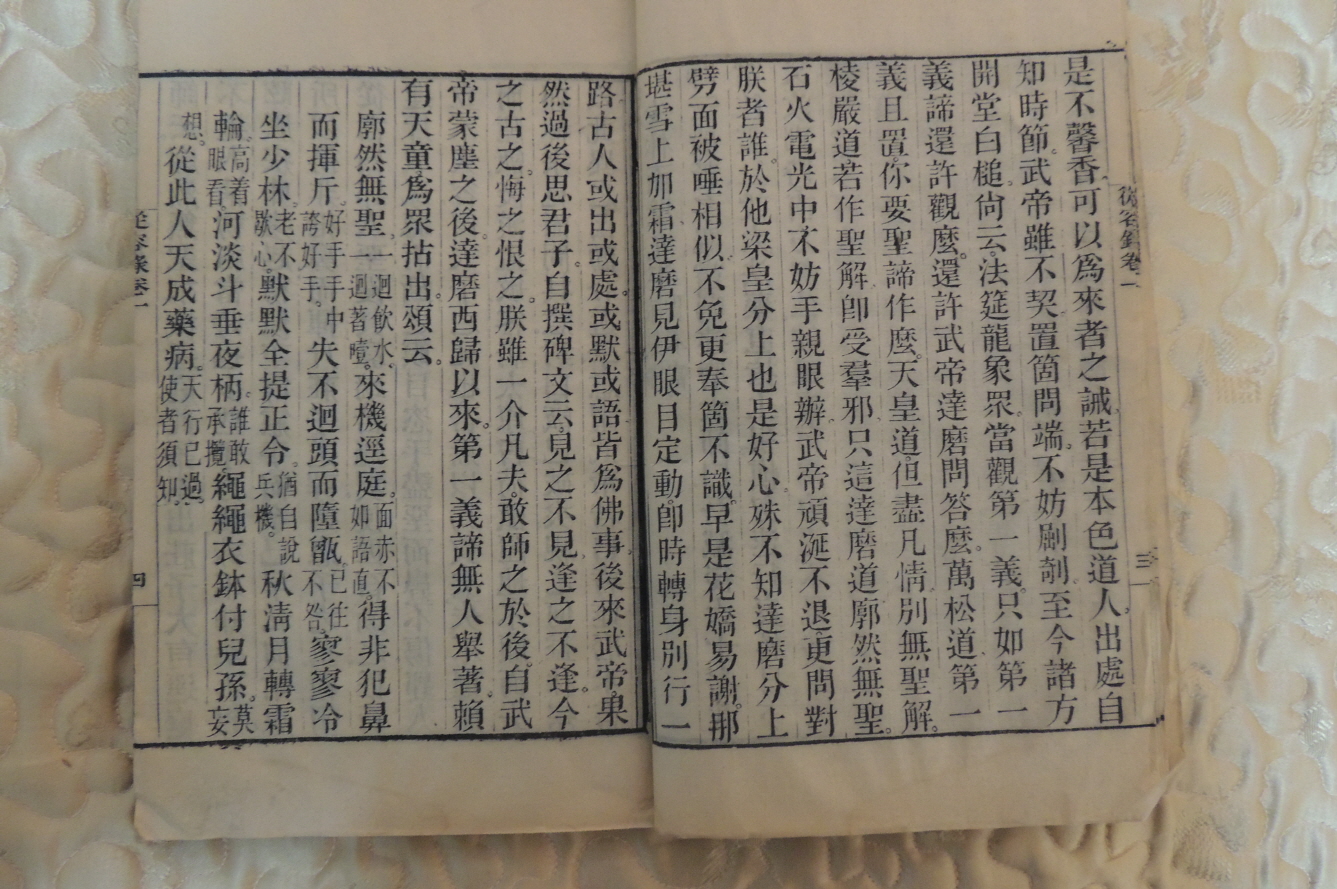 從容錄卷一
三
是不馨香。可以爲來者之誡。若是本色道人。出處自
知時節。武帝雖不契。置箇問端。不妨剮剞。至今諸方
開堂白槌。尙云。法筵龍象眾。當觀第一義。只如第一
義諦。還許觀麼。還許武帝達磨問答麼。萬松道。第一
義且置。你要聖諦作麼。天皇道。但盡凡情。別無聖解。
棱嚴道。若作聖解。卽受羣邪。只這達磨道。廓然無聖。
石火電光中。不妨手親眼辦。武帝頑涎不退。更問對
朕者誰。於他梁皇分上。也是好心。殊不知達磨分上
劈面被唾相似。不免更奉箇不識。早是花嬌易謝。那
堪雪上加霜。達磨見伊眼目定動。卽時轉身別行一
路。古人或出或處。或默或語。皆爲佛事。後來武帝果
然過後思君子。自撰碑文云。見之不見。逢之不逢。今
之古之。悔之恨之。朕雖一介凡夫。敢師之於後。自武
帝蒙塵之後。達磨西歸以來。第一義諦無人舉著。賴
有天童爲眾拈出。頌云。
廓然無聖。一迴飮水。一迴著噎。來機逕庭。面赤不如語直。得非犯鼻
而揮斤。好手手中誇好手。失不迴頭而墮甑。已往不咎。寥寥冷
坐少林。老不歇心。默默全提正令。猶自說兵機。秋淸月轉霜
輪。高着眼看。河淡斗垂夜柄。誰敢承攬。繩繩衣鉢付兒孫。莫妄
想。從此人天成藥病。天行已過。使者須知。
從容錄卷一
四